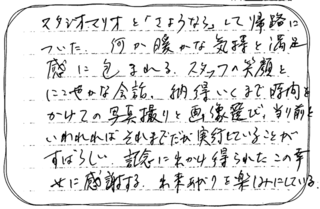 スタジオマリオと「さようなら」して帰路に
ついた。何か暖かな気持と満足
感に包まれる。スタッフの笑顔と
にこやかな会話、納得いくまで時間を
かけての写真撮りと画像選び、当り前と
いわれればそれまでだが実行していることが
すばらしい。記念に出かけ得られたこの幸
せに感謝する。出来あがりを楽しみにしている。